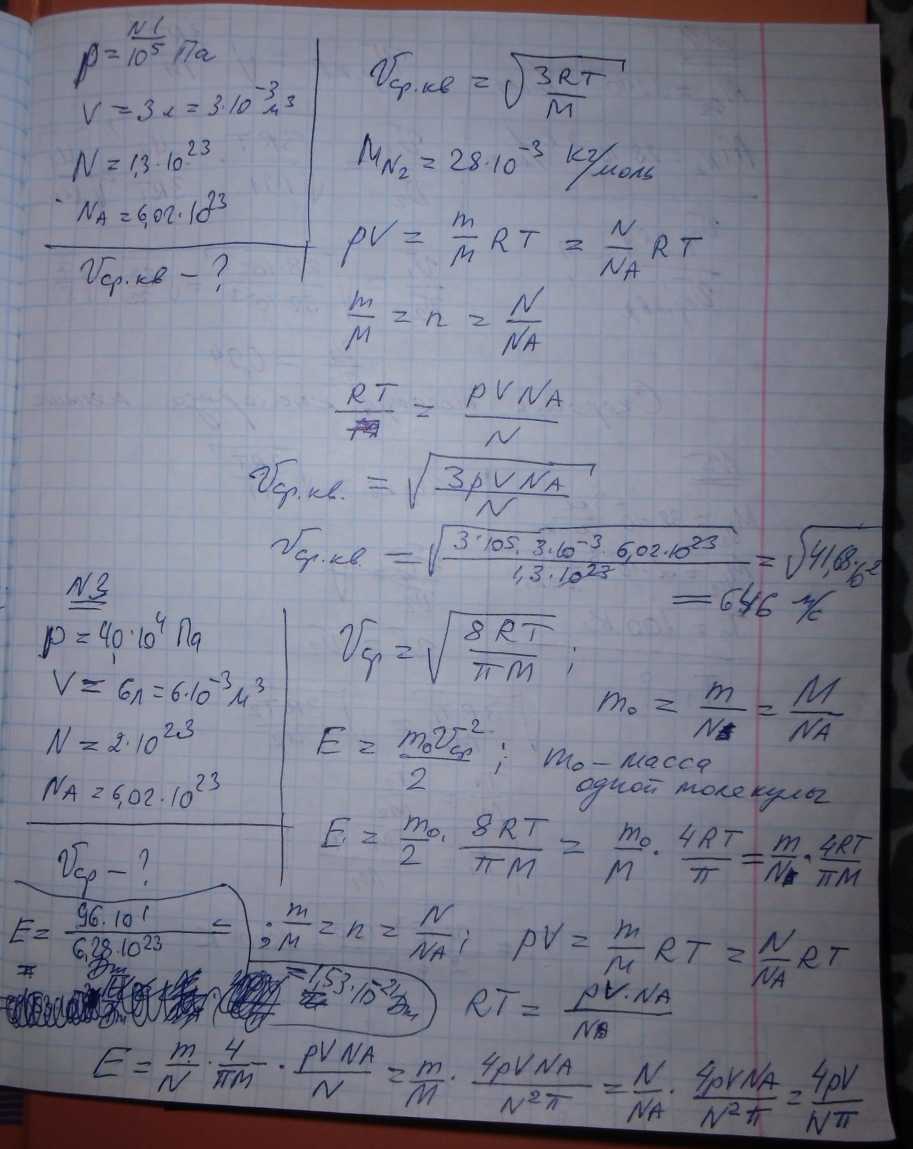 N1
p = 10⁵ Па
V = 3 л = 3·10⁻³ м³
N = 1,3·10²³
N_A = 6,02·10²³
V_ср.кв – ?
V_ср.кв = √(3RT/M)
M_N₂ = 28·10⁻³ кг/моль
pV = m/M RT = N/N_A RT
m/M = n = N/N_A
RT = pVN_A/N
V_ср.кв. = √(3pVN_A/N)
V_ср.кв. = √(3·10⁵·3·10⁻³·6,02·10²³/1,3·10²³) = √(41,68·10²)
= 646 м/с
N3
p = 40·10⁴ Па
V = 6л = 6·10⁻³ м³
N = 2·10²³
N_A = 6,02·10²³
V_ср – ?
V_ср = √(8RT/πM) ;
m₀ = m/N = M/N_A
E = m₀V_ср²/2 ; m₀ – масса
одной молекулы
E = m₀/2 · 8RT/πM = m₀/M · 4RT/π = m/N · 4RT/πM
; m/M = n = N/N_A ; pV = m/M RT = N/N_A RT
RT = pV·N_A/N
E = m/N · 4/πM · pVN_A/N = m/M · 4pVN_A/N²π = N/N_A · 4pVN_A/N²π = 4pV/Nπ
E = 96·10¹/6,28·10²³ =
= 1,53·10⁻²¹ Дж